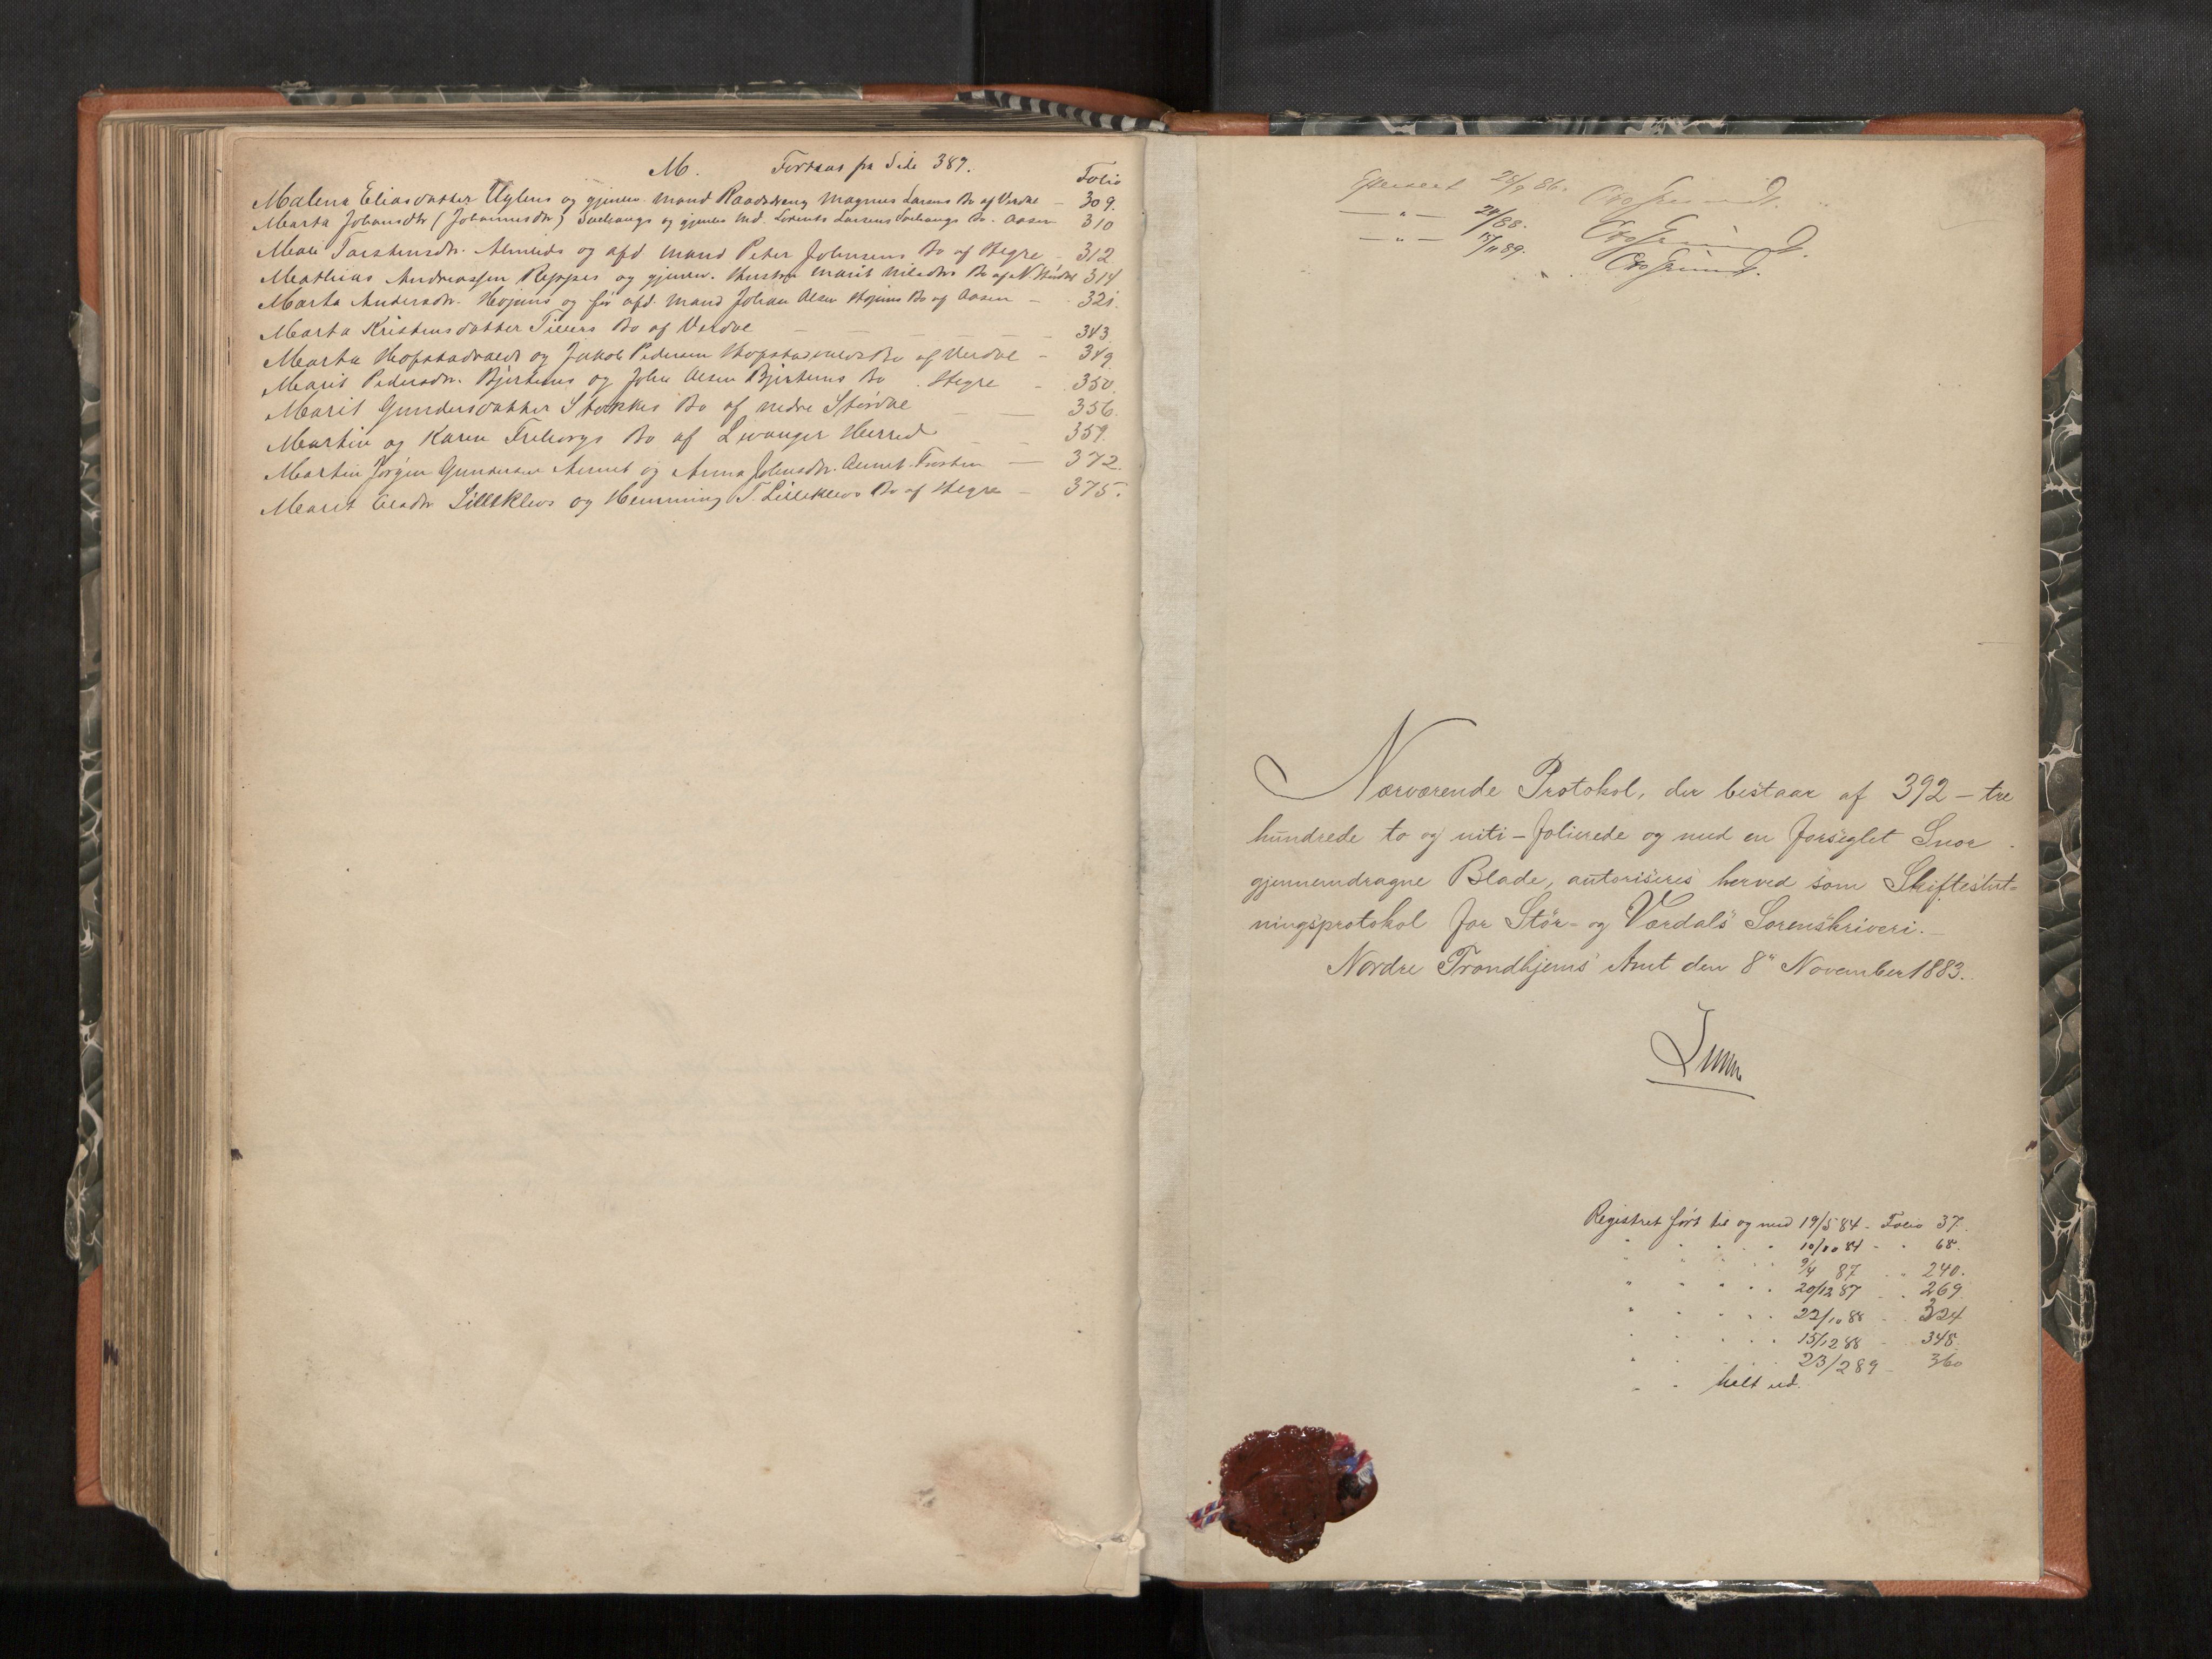 M. Fortsat fra Side 387.
Folio
Malena Eliasdatter Uglens og gjenlev. Mand Magnus Larsens Bo af Verdal — 309.
Marta Johansdtr (Johannesdtr) og gjenlev. Md. Lorents Larsens Bo. Aasen 310
Mari Torstensdtr. og afd. Mand Peter Johnsens Bo af Hegre — 312.
Mathias Andreassen Reppes og gjenlev. Hustru Marit Nilsdtrs Bo af N. Størdal 314
Marta Andersdtr. Hojems og før afd. Mand Johan Olsen Hojems Bo af Aasen — 321.
Marta Kristensdatter Tillers Bo af Verdal — — — — 343.
Marta Hofstadvald og Jakob Pedersen Hofstadvalds Bo af Verdal — 349.
Marit Pedersdtr. Bjertems og John Olsen Bjertems Bo . Hegre — 350.
Marit Gundersdatter Stokkes Bo af nedre Størdal — — 356.
Martin og Karen Treborgs Bo af Levanger Herred — — 359.
Martin Jørgen Gundersen Aunet og Anna Johnsdtr. Aunet. Frosten — 372.
Marit Olsdtr Lilleklevs og Hemming T. Lilleklevs Bo af Hegre — 375.
Efterseet 28/9 86.
— " — 24/ 88.
— " — 15/11 89.
Nærværende Protokol, der bestaar af 392 – tre
hundrede to og niti – folierede og med en forseglet Snor
gjennemdragne Blade, autoriseres herved som Skifteslut=
ningsprotokol for Stør- og Værdals Sorenskriveri. —
Nordre Trondhjems Amt den 8" November 1883.
Registret ført til og med 19/5 84 - Folio 37.
" " " " " 10/10 84 - " 68.
" " " " " 9/4 87 " 240.
" " " " " 20/12 87 " 269.
" " " " " 22/10 88 " 324
" " " " " 15/12 88 348.
" " " " " 23/2 89 - 360
" " helt ud.